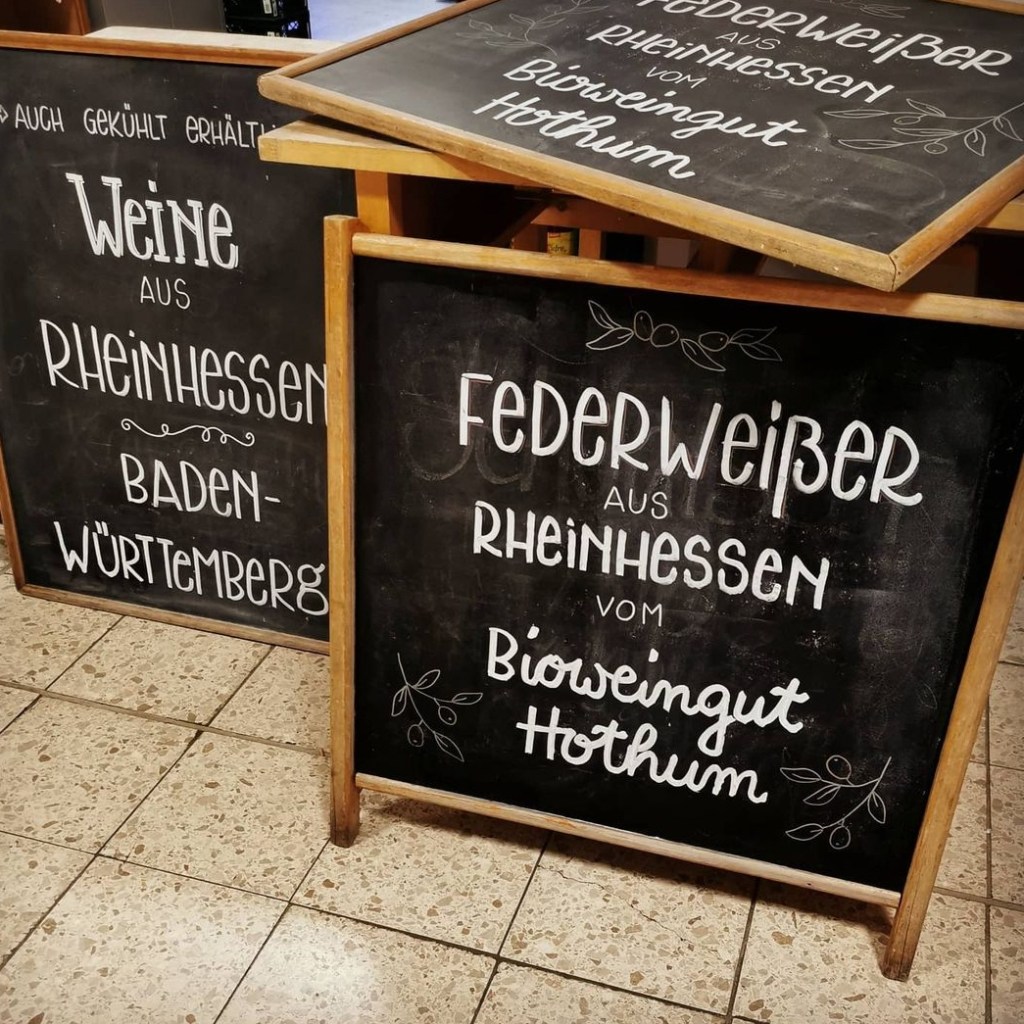 AUCH GEKÜHLT
Weine
AUS
RHEINHESSEN
BADEN-
WÜRTTEMBERG
FEDERWEIßER
AUS
RHEINHESSEN
VOM
Bioweingut
Hothum
FEDERWEIßER
AUS
RHEINHESSEN
VOM
Bioweingut
Hothum